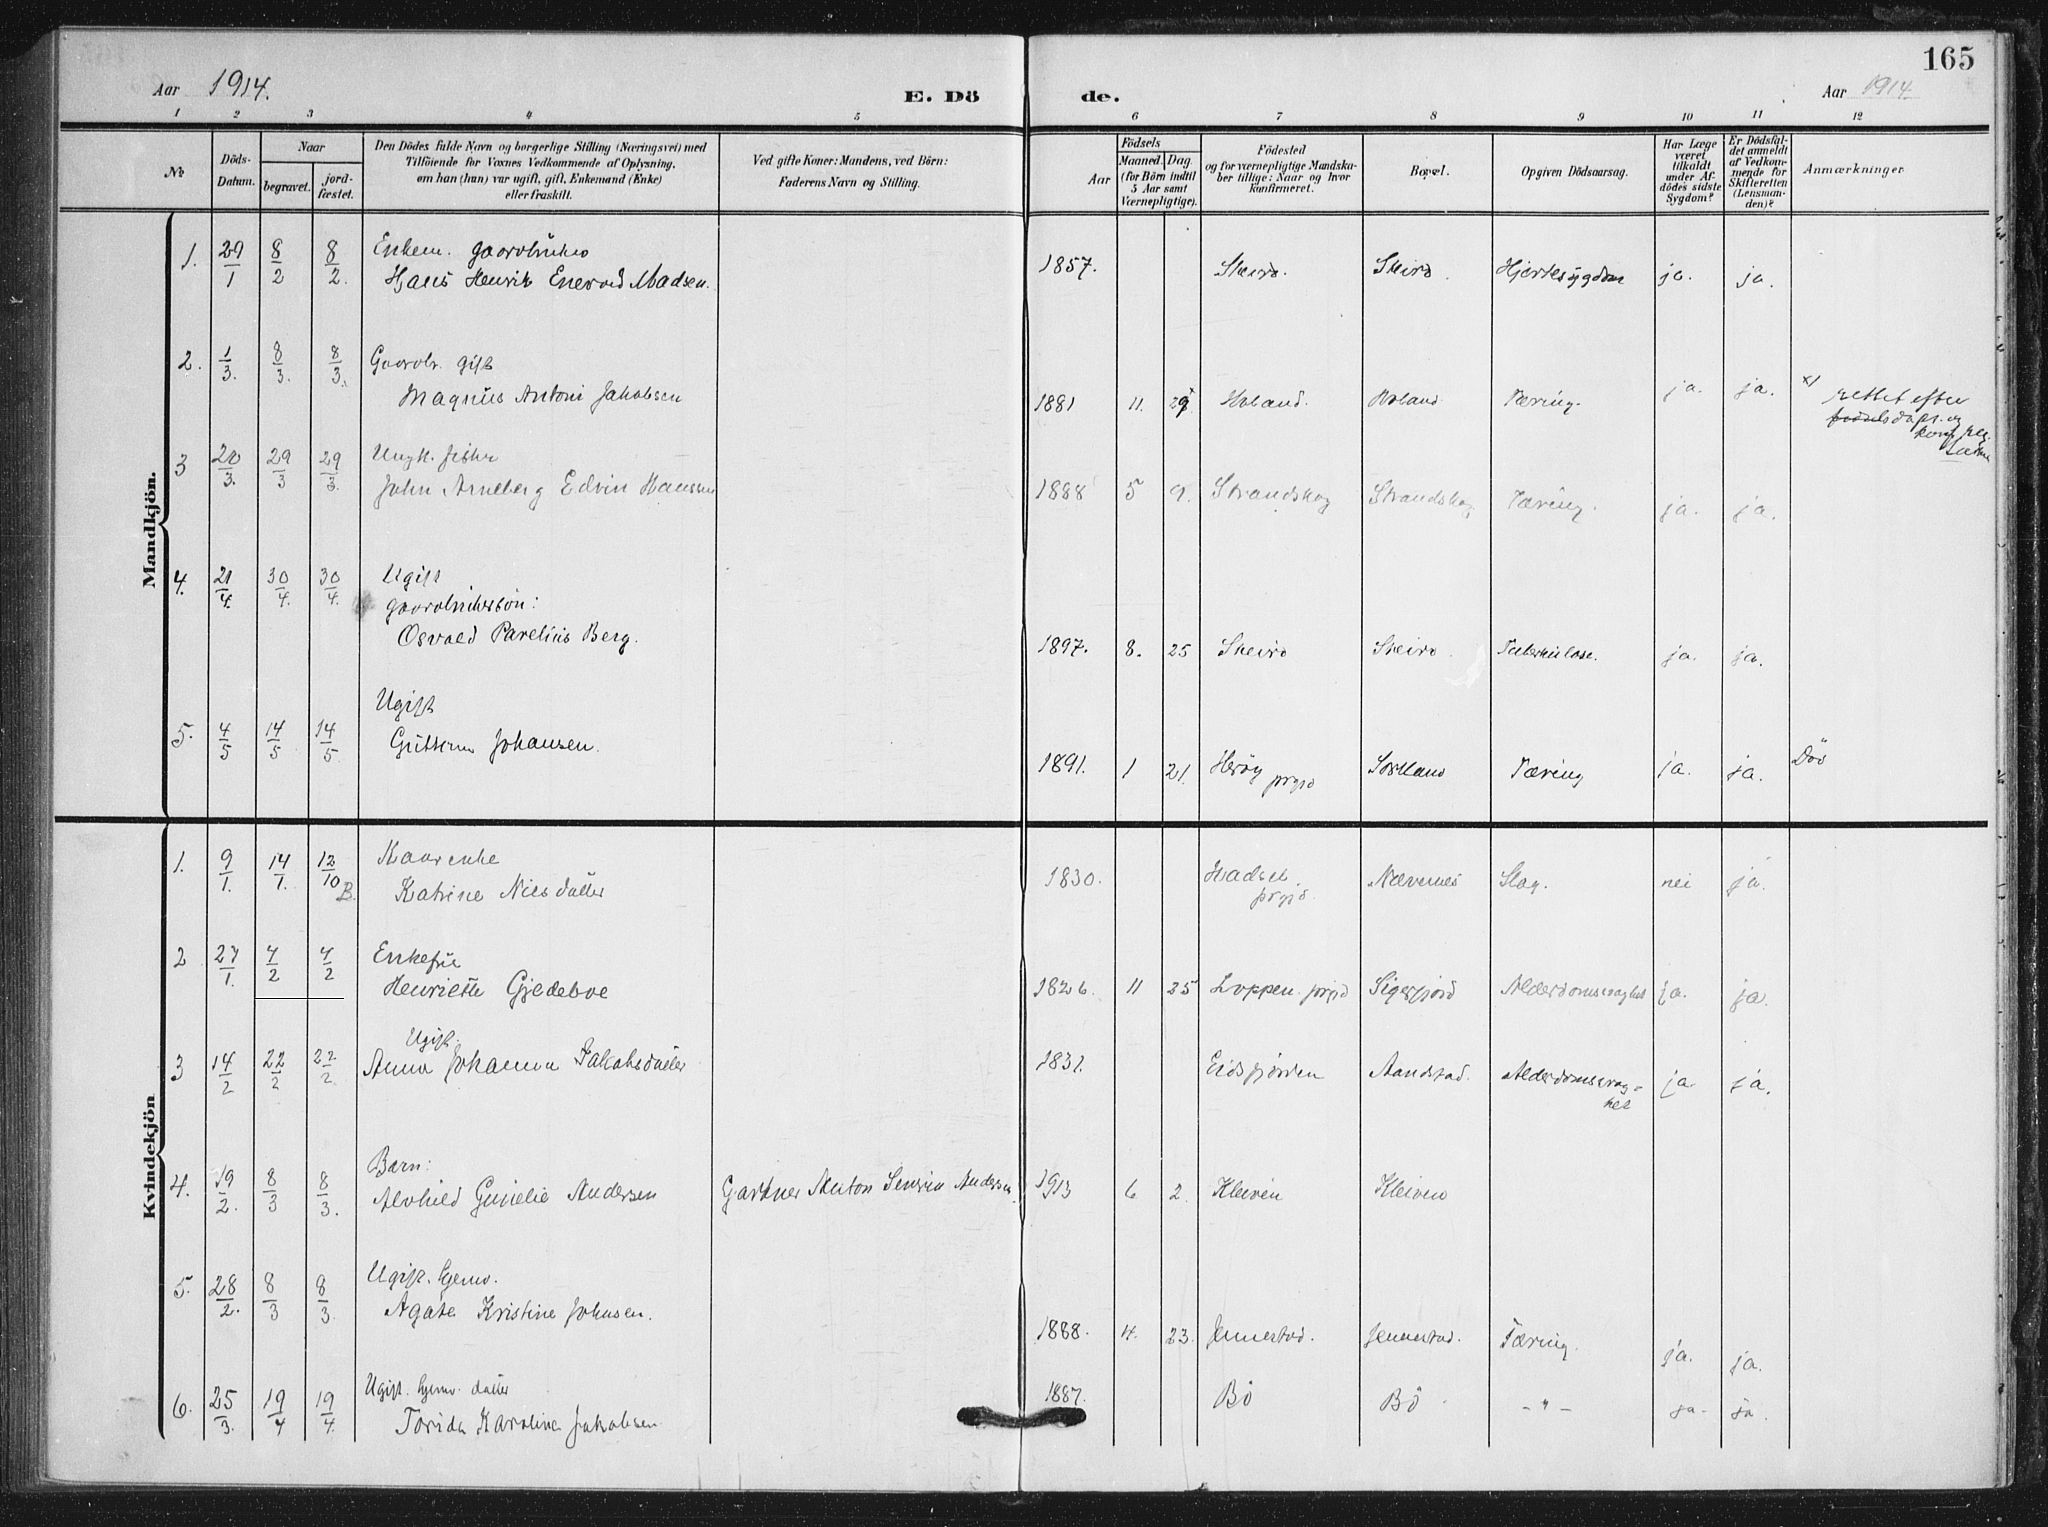 165
Aar 1914.
E. Dö
de.
Aar 1914.
1 2 3 4 5 6 7 8 9 10 11 12
No
Döds-
Datum.
Naar
begravet.
jord-
fæstet.
Den Dödes fulde Navn og borgerlige Stilling (Næringsvei) med
Tilföiende for Voxnes Vedkommende af Oplysning,
om han (hun) var ugift, gift, Enkemand (Enke)
eller fraskilt.
Ved gifte Koner: Mandens, ved Börn:
Faderens Navn og Stilling.
Födsels
Aar
Maaned. Dag.
(for Börn indtil
5 Aar samt
Værnepligtige).
Födested
og for værnepligtige Mandska-
ber tillige: Naar og hvor
konfirmeret.
Bopæl.
Opgiven Dödsaarsag.
Har Læge
været
tilkaldt
under Af-
dödes sidste
Sygdom?
Er Dödsfal-
det anmeldt
af Vedkom-
mende for
Skifteretten
(Lensman-
den)?
Anmærkninger
Mandkjön.
1. 29/1 8/2 8/2.
Hans Henrik Madsen. 1857. Hjertesygdom ja. ja.
2. 1/3. 8/3. 8/3.
Gaardbr. gift
Magnus Antoni Jakobsen 1881 11. Holand. Holand Tæring. ja. ja. x) rettet efter
3 20/3. 29/3 29/3.
Ungk. fisker
John Arneberg Edvin Hanssen 1888 5 9. Strandskog Strandskog Tæring. ja. ja.
4. 21/4. 30/4. 30/4.
Ugift
gaardbrukersön:
Osvald Parelius Berg. 1897. 8. 25 Tuberkulose. ja. ja.
5. 4/5 14/5 14/5
Ugift
Johansen. 1891. 1 21. Herøy prgjd Sortland Tæring ja. ja. Döv
Kvindekjön
1. 9/1. 14/1. 12/10 B.
Kaarenke
Katrine Nilsdatter 1830. Hadsel prgjd. Nævernes Slag. nei ja.
2 27/1. 7/2 7/2
Enkefru
Henriette Gjedeboe 1826. 11 25 Loppen prgjd Sigerfjord Alderdomssvaghet ja. ja.
3 14/2 22/2 22/2
Ugift.
Anna Johanna Jakobsdatter 1831. Eidsfjorden Aandstad. Alderdomssvag-
het ja. ja.
4. 19/2. 8/3 8/3.
Barn:
Alvhild Andersen Severin Andersen 1913 6 2. Kleiven Kleiven
5. 28/2. 8/3 8/3.
Ugift.
Agate Kristine Johnsen. 1888. 4. 23. Jennestad. Jennestad. Tæring. ja. ja.
6. 25/3. 19/4 19/4.
Ugift. datter
Torida Karoline Jakobsen 1887. Bö Bö - " - ja. ja.